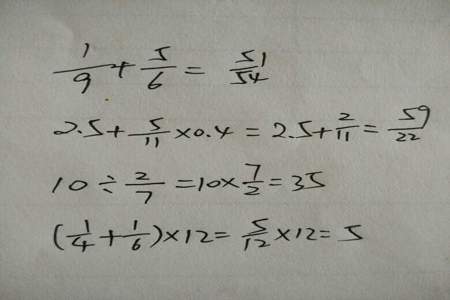 1/9 + 5/6 = 51/54
2.5 + 5/11 × 0.4 = 2.5 + 2/11 = 59/22
10 ÷ 2/7 = 10 × 7/2 = 35
(1/4 + 1/6) × 12 = 5/12 × 12 = 5